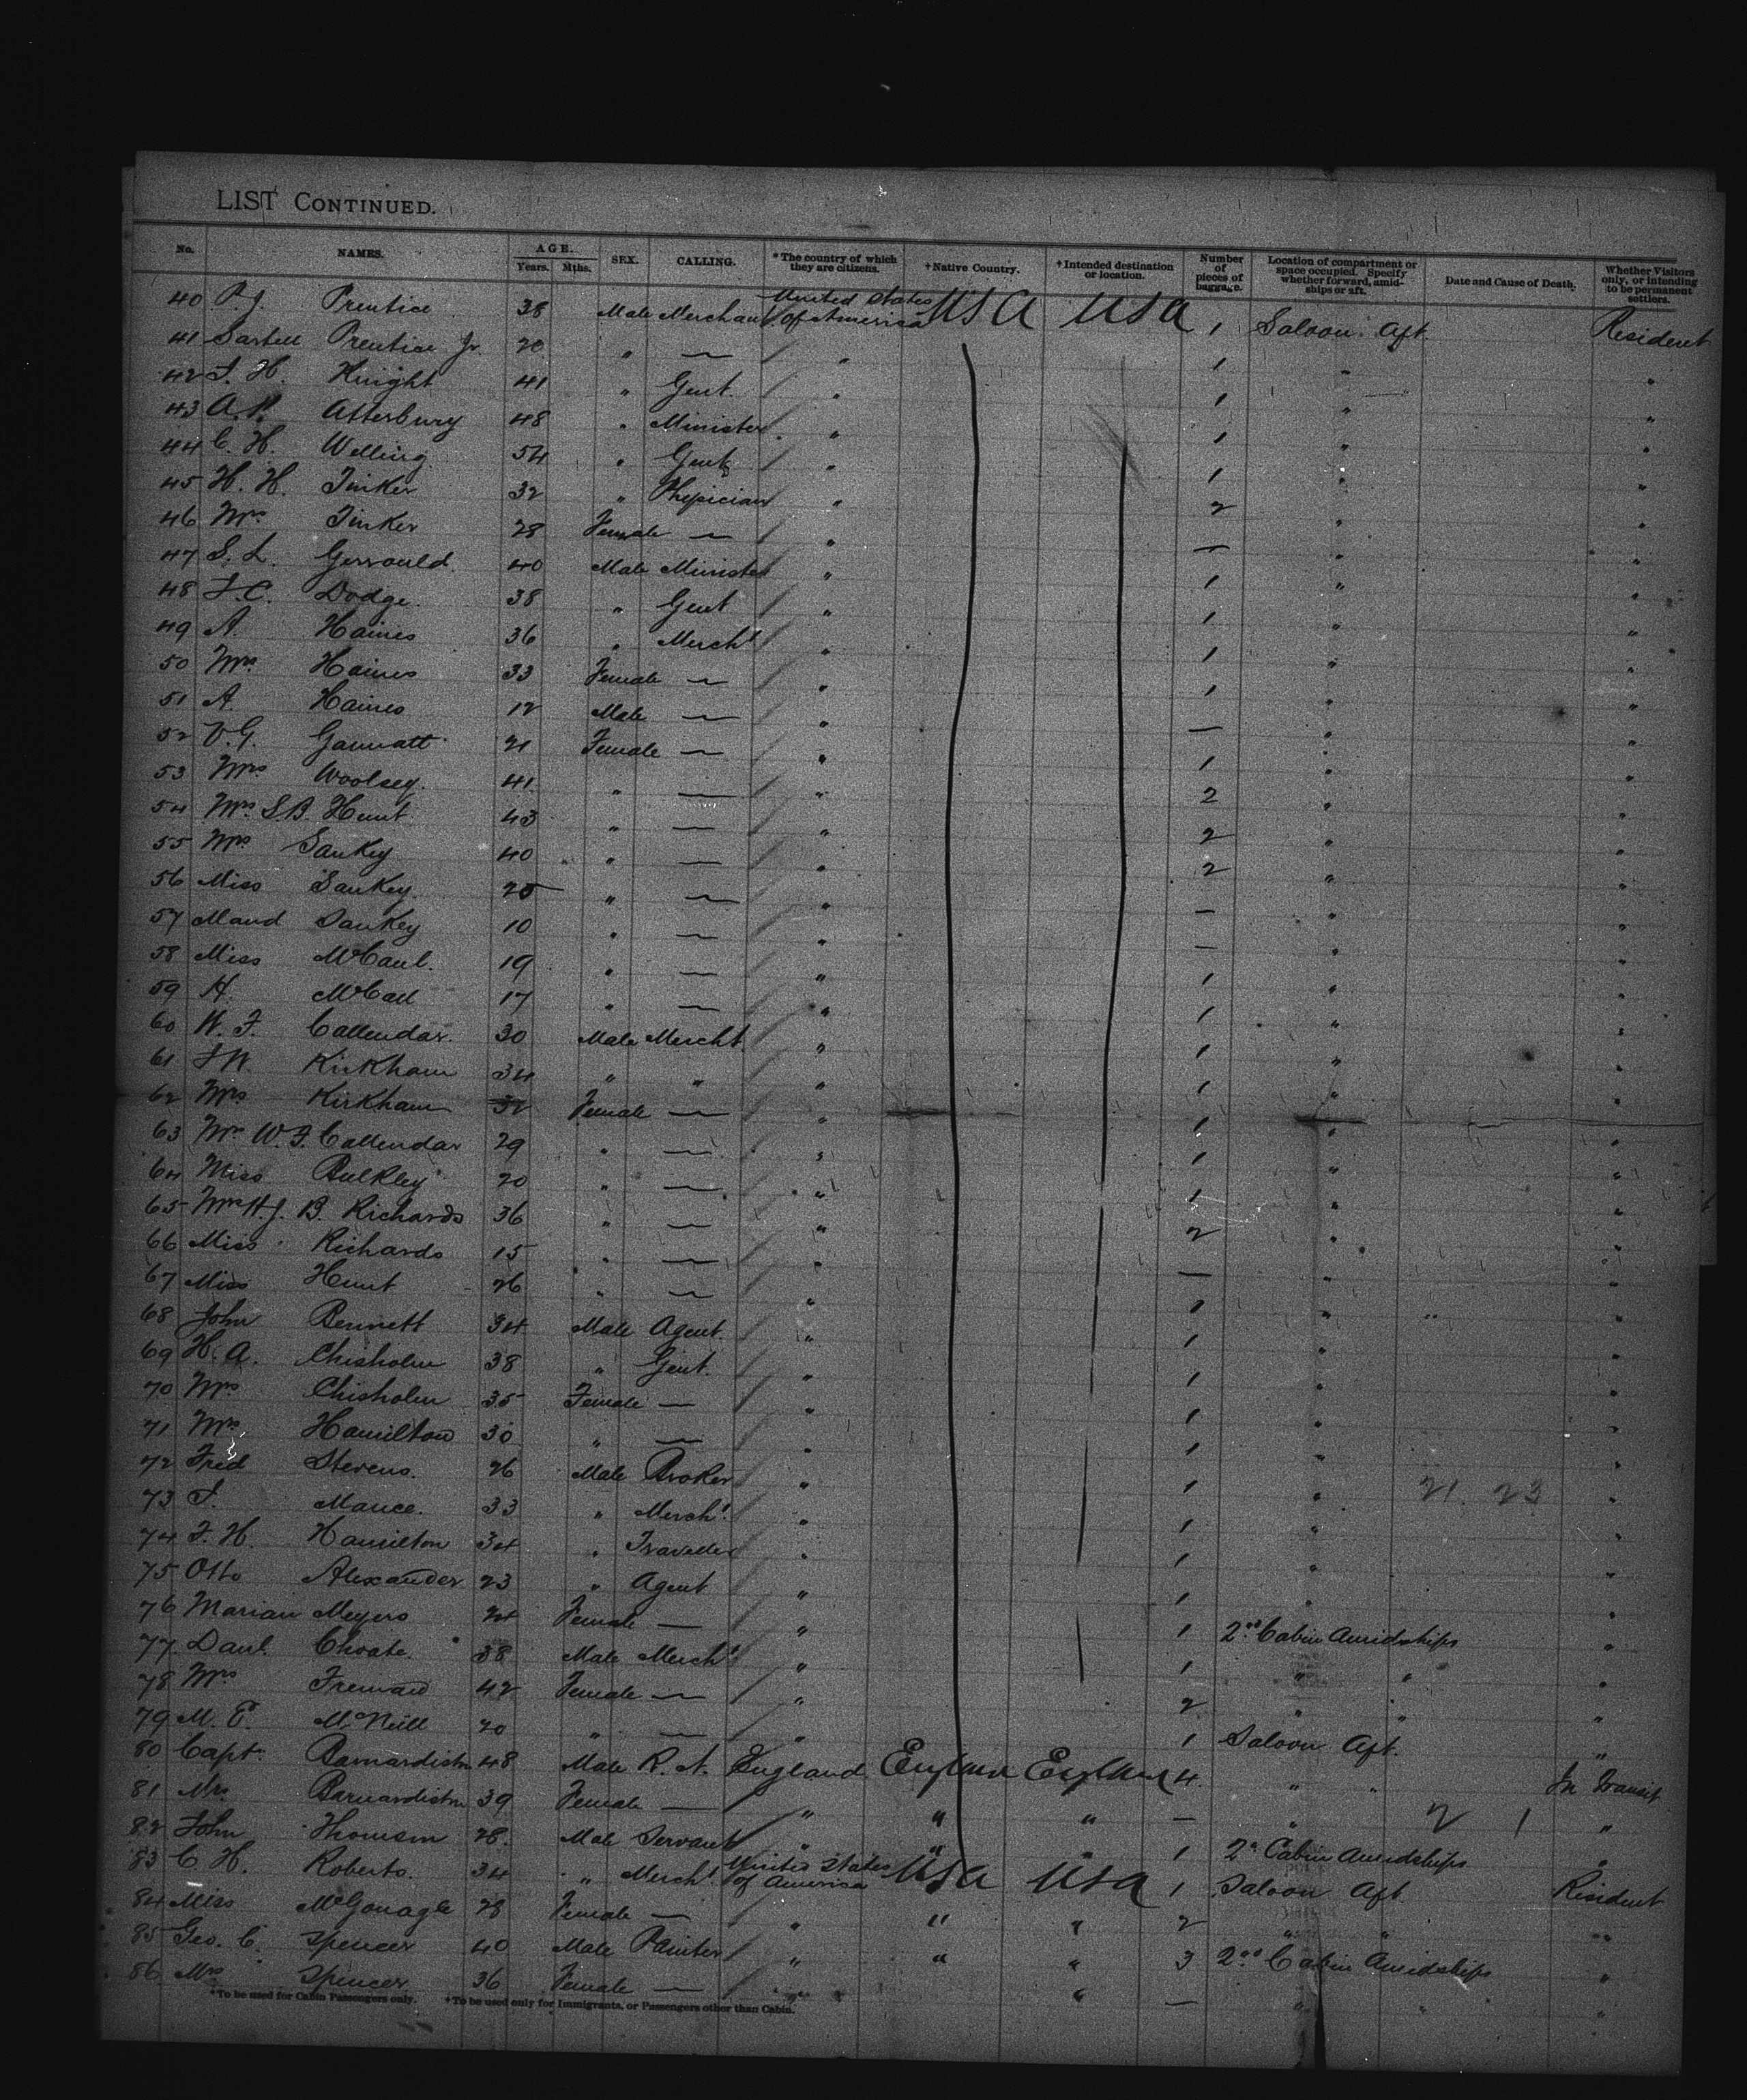 LIST CONTINUED.
No. NAMES. AGE. Years. Mths. SEX. CALLING. *The country of which they are citizens. †Native Country. †Intended destination or location. Number of pieces of baggage. Location of compartment or space occupied. Specify whether forward, amidships or aft. Date and Cause of Death. Whether Visitors only, or intending to be permanent settlers.
40 P. J. Prentice 38 Male Merchant United States of America USA USA 1 Saloon Aft. Resident
41 Sartell Prentice Jr. 20 " — " 1 " "
42 T. H. Knight 41 " Gent. " 1 " "
43 A. P. Atterbury 48 " Minister " 1 " "
44 C. H. Welling 54 " Gent " 1 " "
45 H. H. Tinker 32 " Physician " 2 " "
46 Mrs Tinker 28 Female — " — " "
47 S. L. Gerrould. 40 Male Minister " 1 " "
48 F. C. Dodge. 38 " Gent " 1 " "
49 A. Haines 36 " Mercht " 1 " "
50 Mrs Haines 33 Female — " 1 " "
51 A. Haines 12 Male — " — " "
52 V. G. Gannatt 21 Female — " 1 " "
53 Mrs Woolsey. 41 " — " 2 " "
54 Mrs S. B. Hunt 43 " — " 2 " "
55 Mrs Sankey 40 " — " 2 " "
56 Miss Sankey 25 " — " — " "
57 Maud Sankey 10 " — " — " "
58 Miss McCaul. 19 " — " 1 " "
59 H. McCall 17 " — " 1 " "
60 W. F. Callendar. 30 Male Mercht. " 1 " "
61 J W. Kirkham 34 " " " 1 " "
62 Mrs Kirkham 32 Female — " 1 " "
63 Mrs W. F. Callendar 29 " — " 1 " "
64 Miss Bulkley 20 " — " 1 " "
65 Mrs H. J. B. Richards 36 " — " 2 " "
66 Miss Richards 15 " — " — " "
67 Miss Hunt 26 " — " 1 " "
68 John Bennett 34 Male Agent. " 1 " "
69 H. A. Chisholm 38 " Gent. " 1 " "
70 Mrs Chisholm 35 Female — " 1 " "
71 Mrs Hamilton 30 " — " 1 " "
72 Fred Stevens. 26 Male Broker " 1 " 21. 23 "
73 J. Mance. 33 " Mercht. " 1 " "
74 F. H. Hamilton 34 " Traveller " 1 " "
75 Otto Alexander 23 " Agent " 1 " "
76 Marian Meyers 24 Female — " 1 2nd Cabin Amidships "
77 Danl. Choate. 38 Male Mercht " 1 " " "
78 Mrs 42 Female — " 2 " " "
79 M. E. McNeill 20 " — " 1 Saloon Aft. "
80 Capt. Barnardiston 48 Male R. N. England England England 4 " " In Transit
81 Mrs Barnardiston 39 Female — " " " — " 2 1 "
82 John Thomson 28. Male Servant " " " 1 2nd Cabin Amidships "
83 C H. Roberts. 34 " Mercht. United States of America USA USA 1 Saloon Aft Resident
84 Miss McGonagle 28 Female — " " " 2 " " "
85 Geo. C. Spencer 40 Male Painter " " " 3 2nd Cabin Amidships "
86 Mrs Spencer 36 Female — " " — " " "
*To be used for Cabin Passengers only. †To be used only for Immigrants, or Passengers other than Cabin.